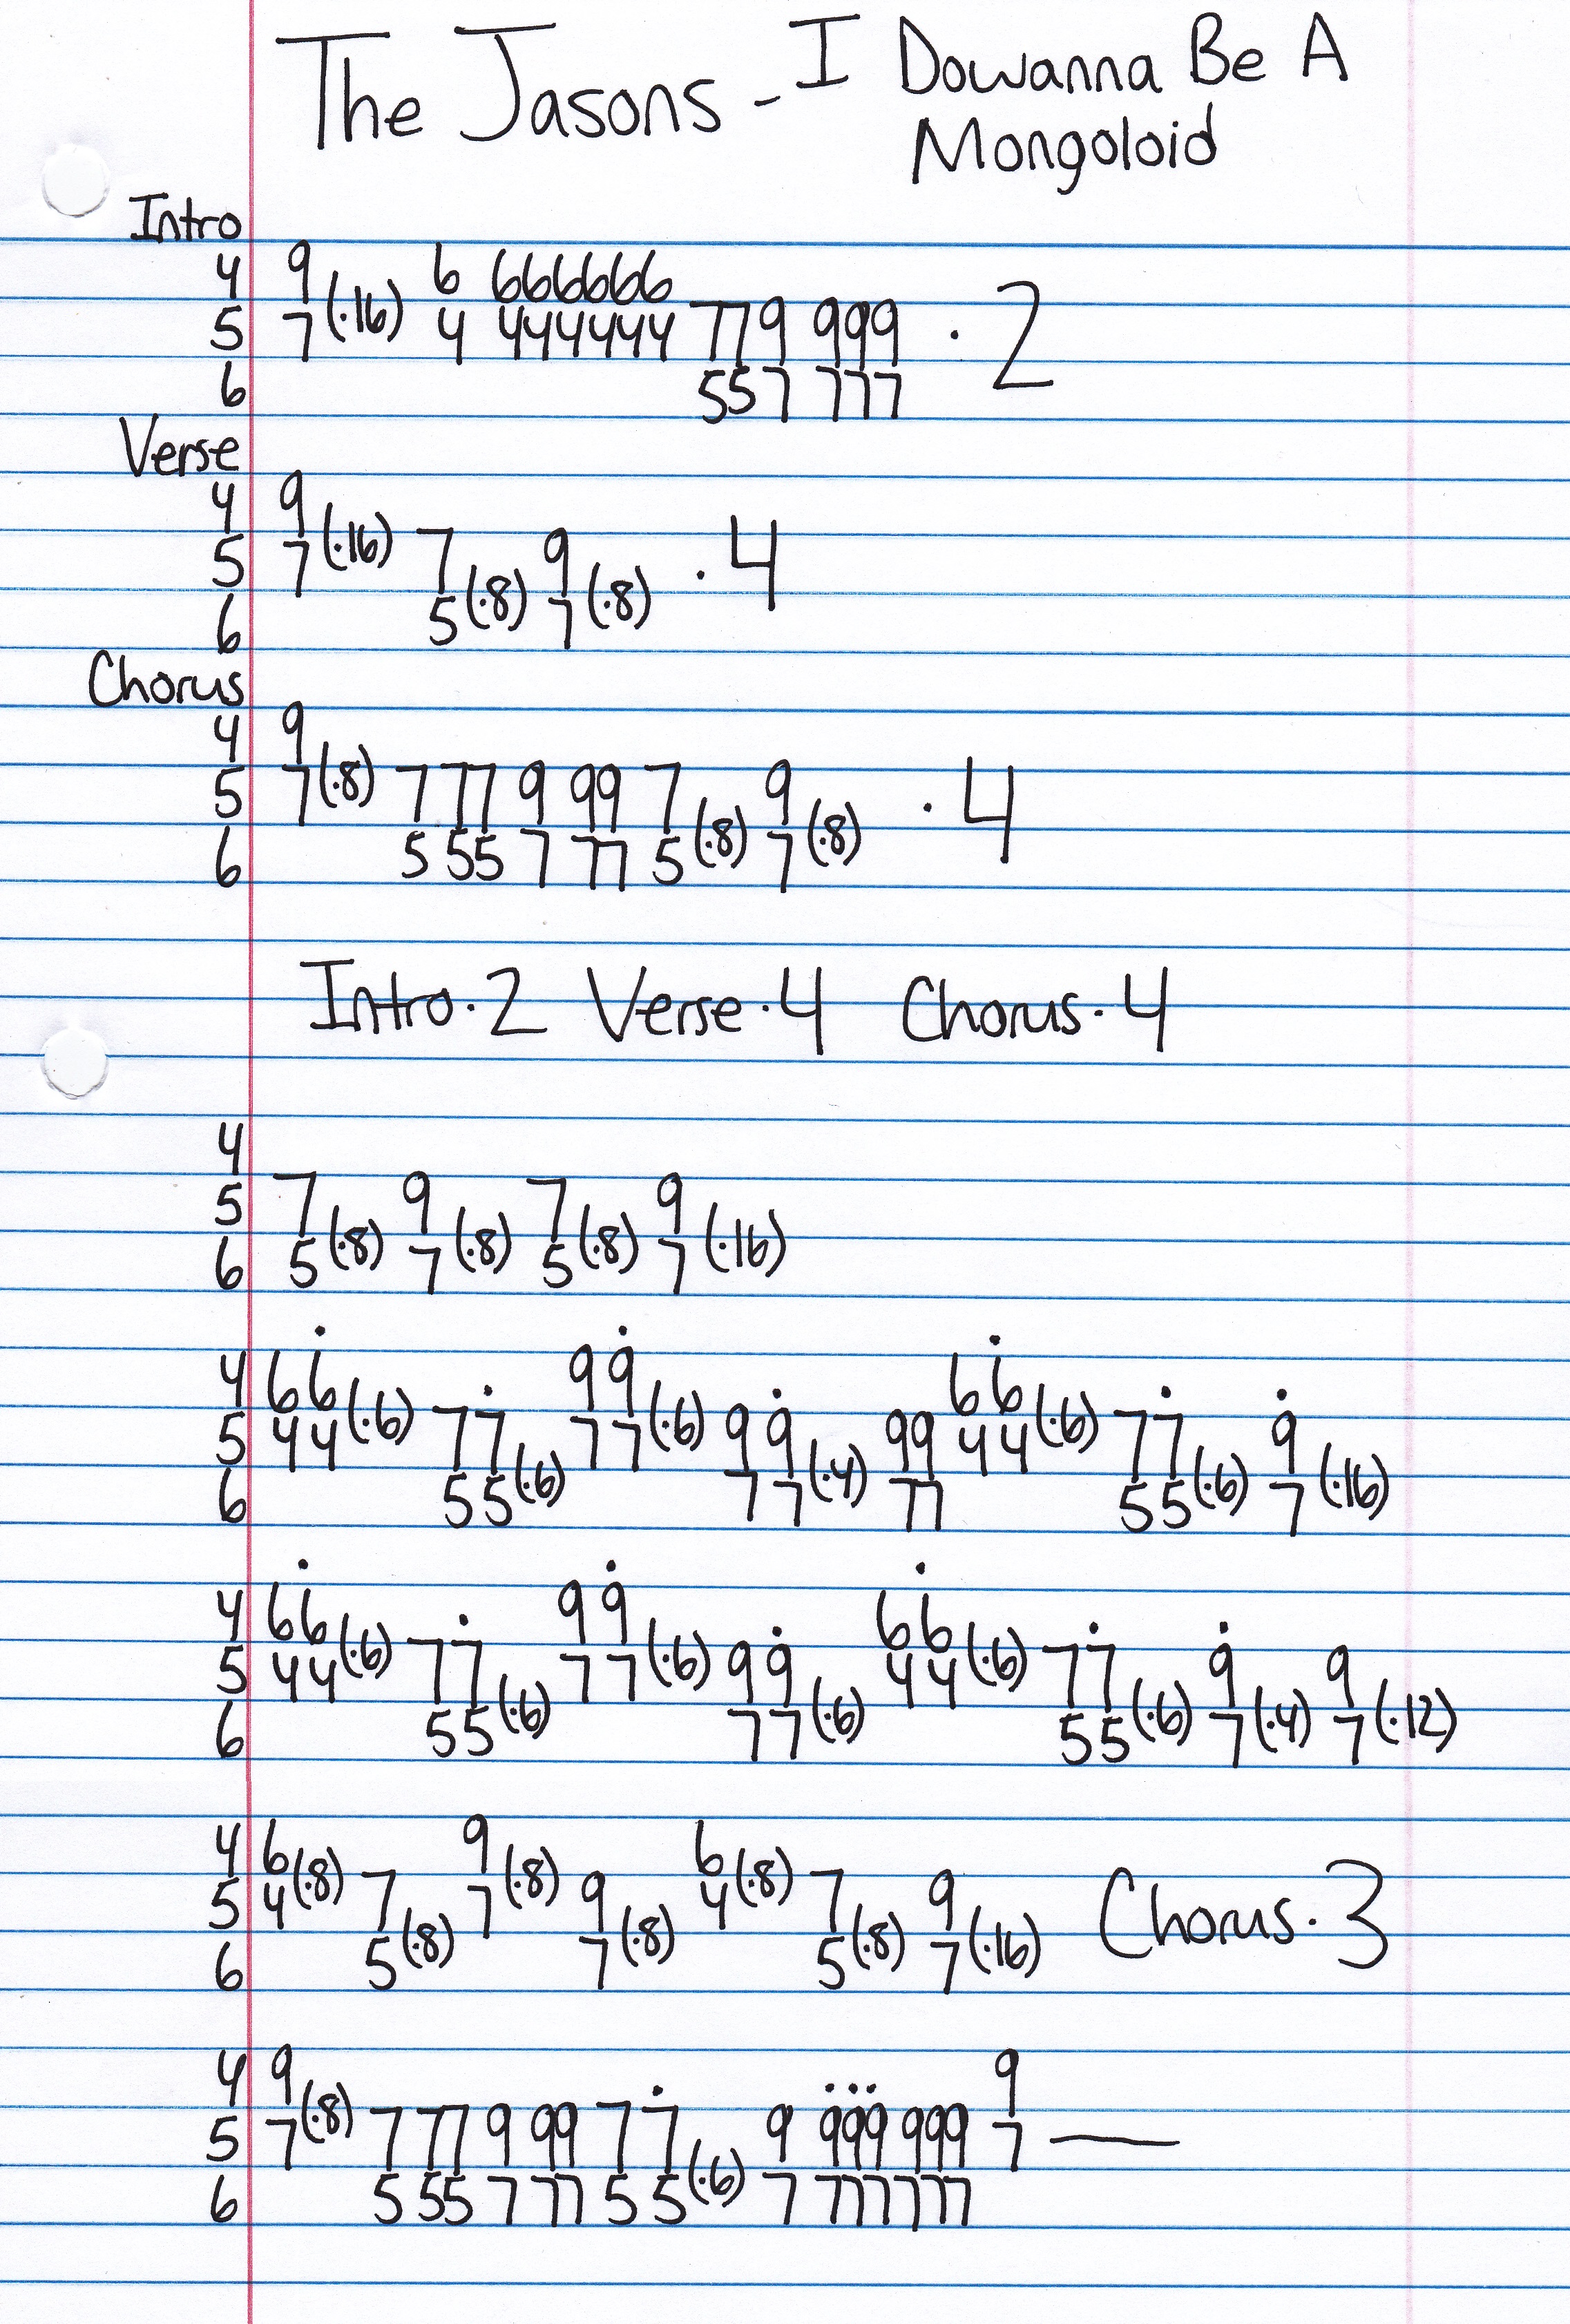 The Jasons - I Dowanna Be A
Mongoloid
Intro
4 9 6 666666
5 7 (·16) 4 444444 779 999 · 2
6 557 777
Verse
4 9
5 7 (·16) 7 9 · 4
6 5 (·8) 7 (·8)
Chorus
4 9
5 7 (·8) 7 77 9 99 7 9 · 4
6 5 55 7 77 5 (·8) 7 (·8)
Intro · 2 Verse · 4 Chorus · 4
4
5 7 9 7 9
6 5 (·8) 7 (·8) 5 (·8) 7 (·16)
4 6 6̇ 9 9̇ 6 6̇
5 4 4 (·6) 7 7̇ 7 7 (·6) 9 9̇ 99 4 4 (·6) 7 7̇ 9̇
6 5 5 (·6) 7 7 (·4) 77 5 5 (·6) 7 (·16)
4 6 6̇ 9 9̇ 6 6̇
5 4 4 (·6) 7 7̇ 7 7 (·6) 9 9̇ 4 4 (·6) 7 7̇ 9̇ 9
6 5 5 (·6) 7 7 (·6) 5 5 (·6) 7 (·4) 7 (·12)
4 6 9 6
5 4 (·8) 7 7 (·8) 9 4 (·8) 7 9 Chorus · 3
6 5 (·8) 7 (·8) 5 (·8) 7 (·16)
4 9 9
5 7 (·8) 7 77 9 99 7 7̇ 9 9̇9̇9̇ 999 7 —
6 5 55 7 77 5 5 (·6) 7 777777